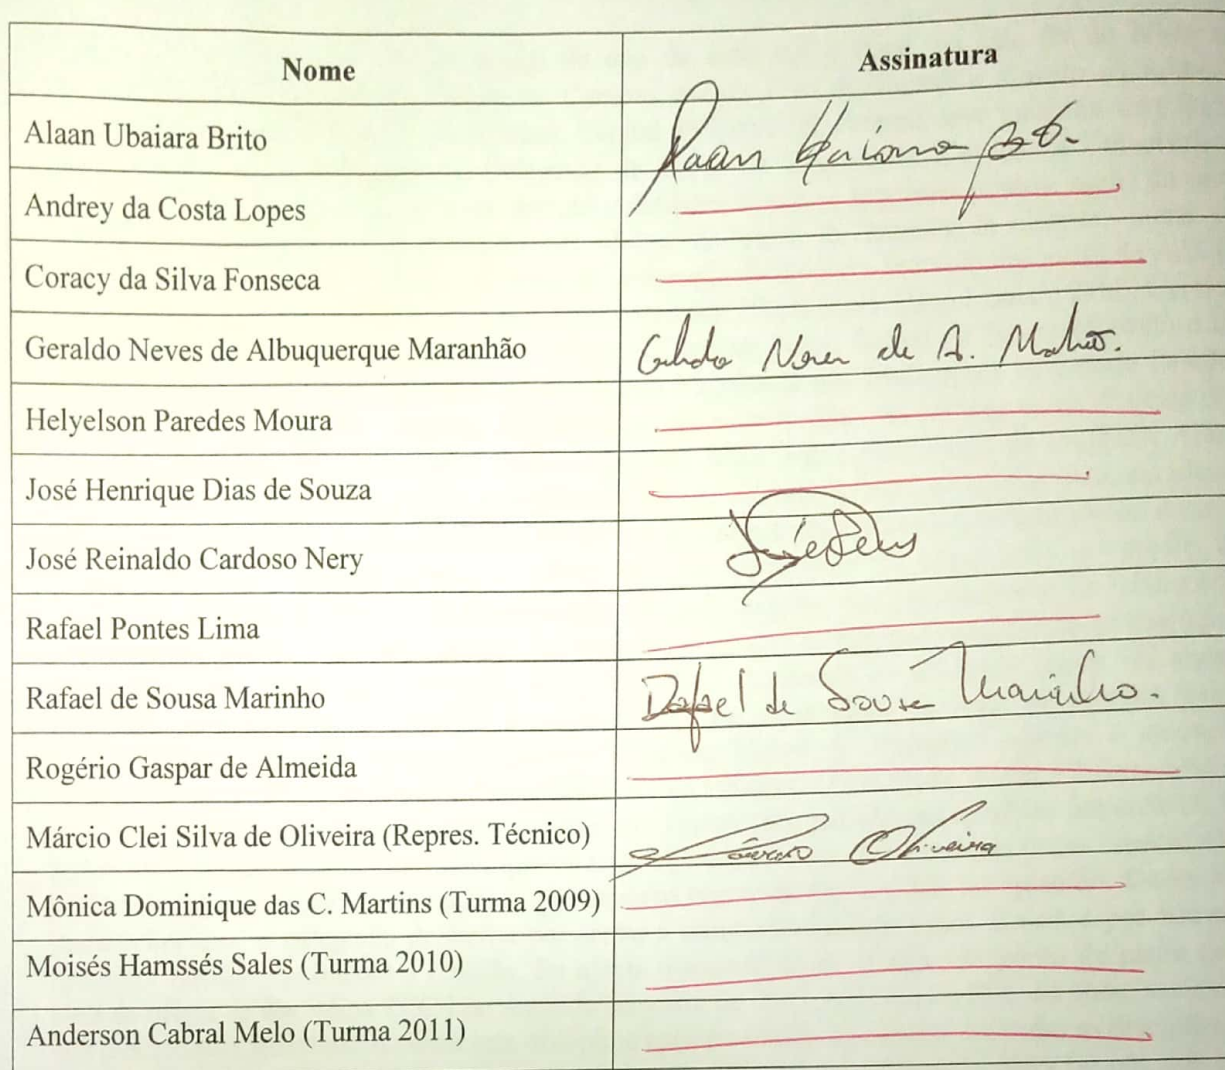 Nome Assinatura
Alaan Ubaiara Brito Alaan Ubaiara
Andrey da Costa Lopes
Coracy da Silva Fonseca
Geraldo Neves de Albuquerque Maranhão Neves de A.
Helyelson Paredes Moura
José Henrique Dias de Souza
José Reinaldo Cardoso Nery
Rafael Pontes Lima
Rafael de Sousa Marinho Rafael de Sousa Marinho.
Rogério Gaspar de Almeida
Márcio Clei Silva de Oliveira (Repres. Técnico) Márcio Oliveira
Mônica Dominique das C. Martins (Turma 2009)
Moisés Hamssés Sales (Turma 2010)
Anderson Cabral Melo (Turma 2011)